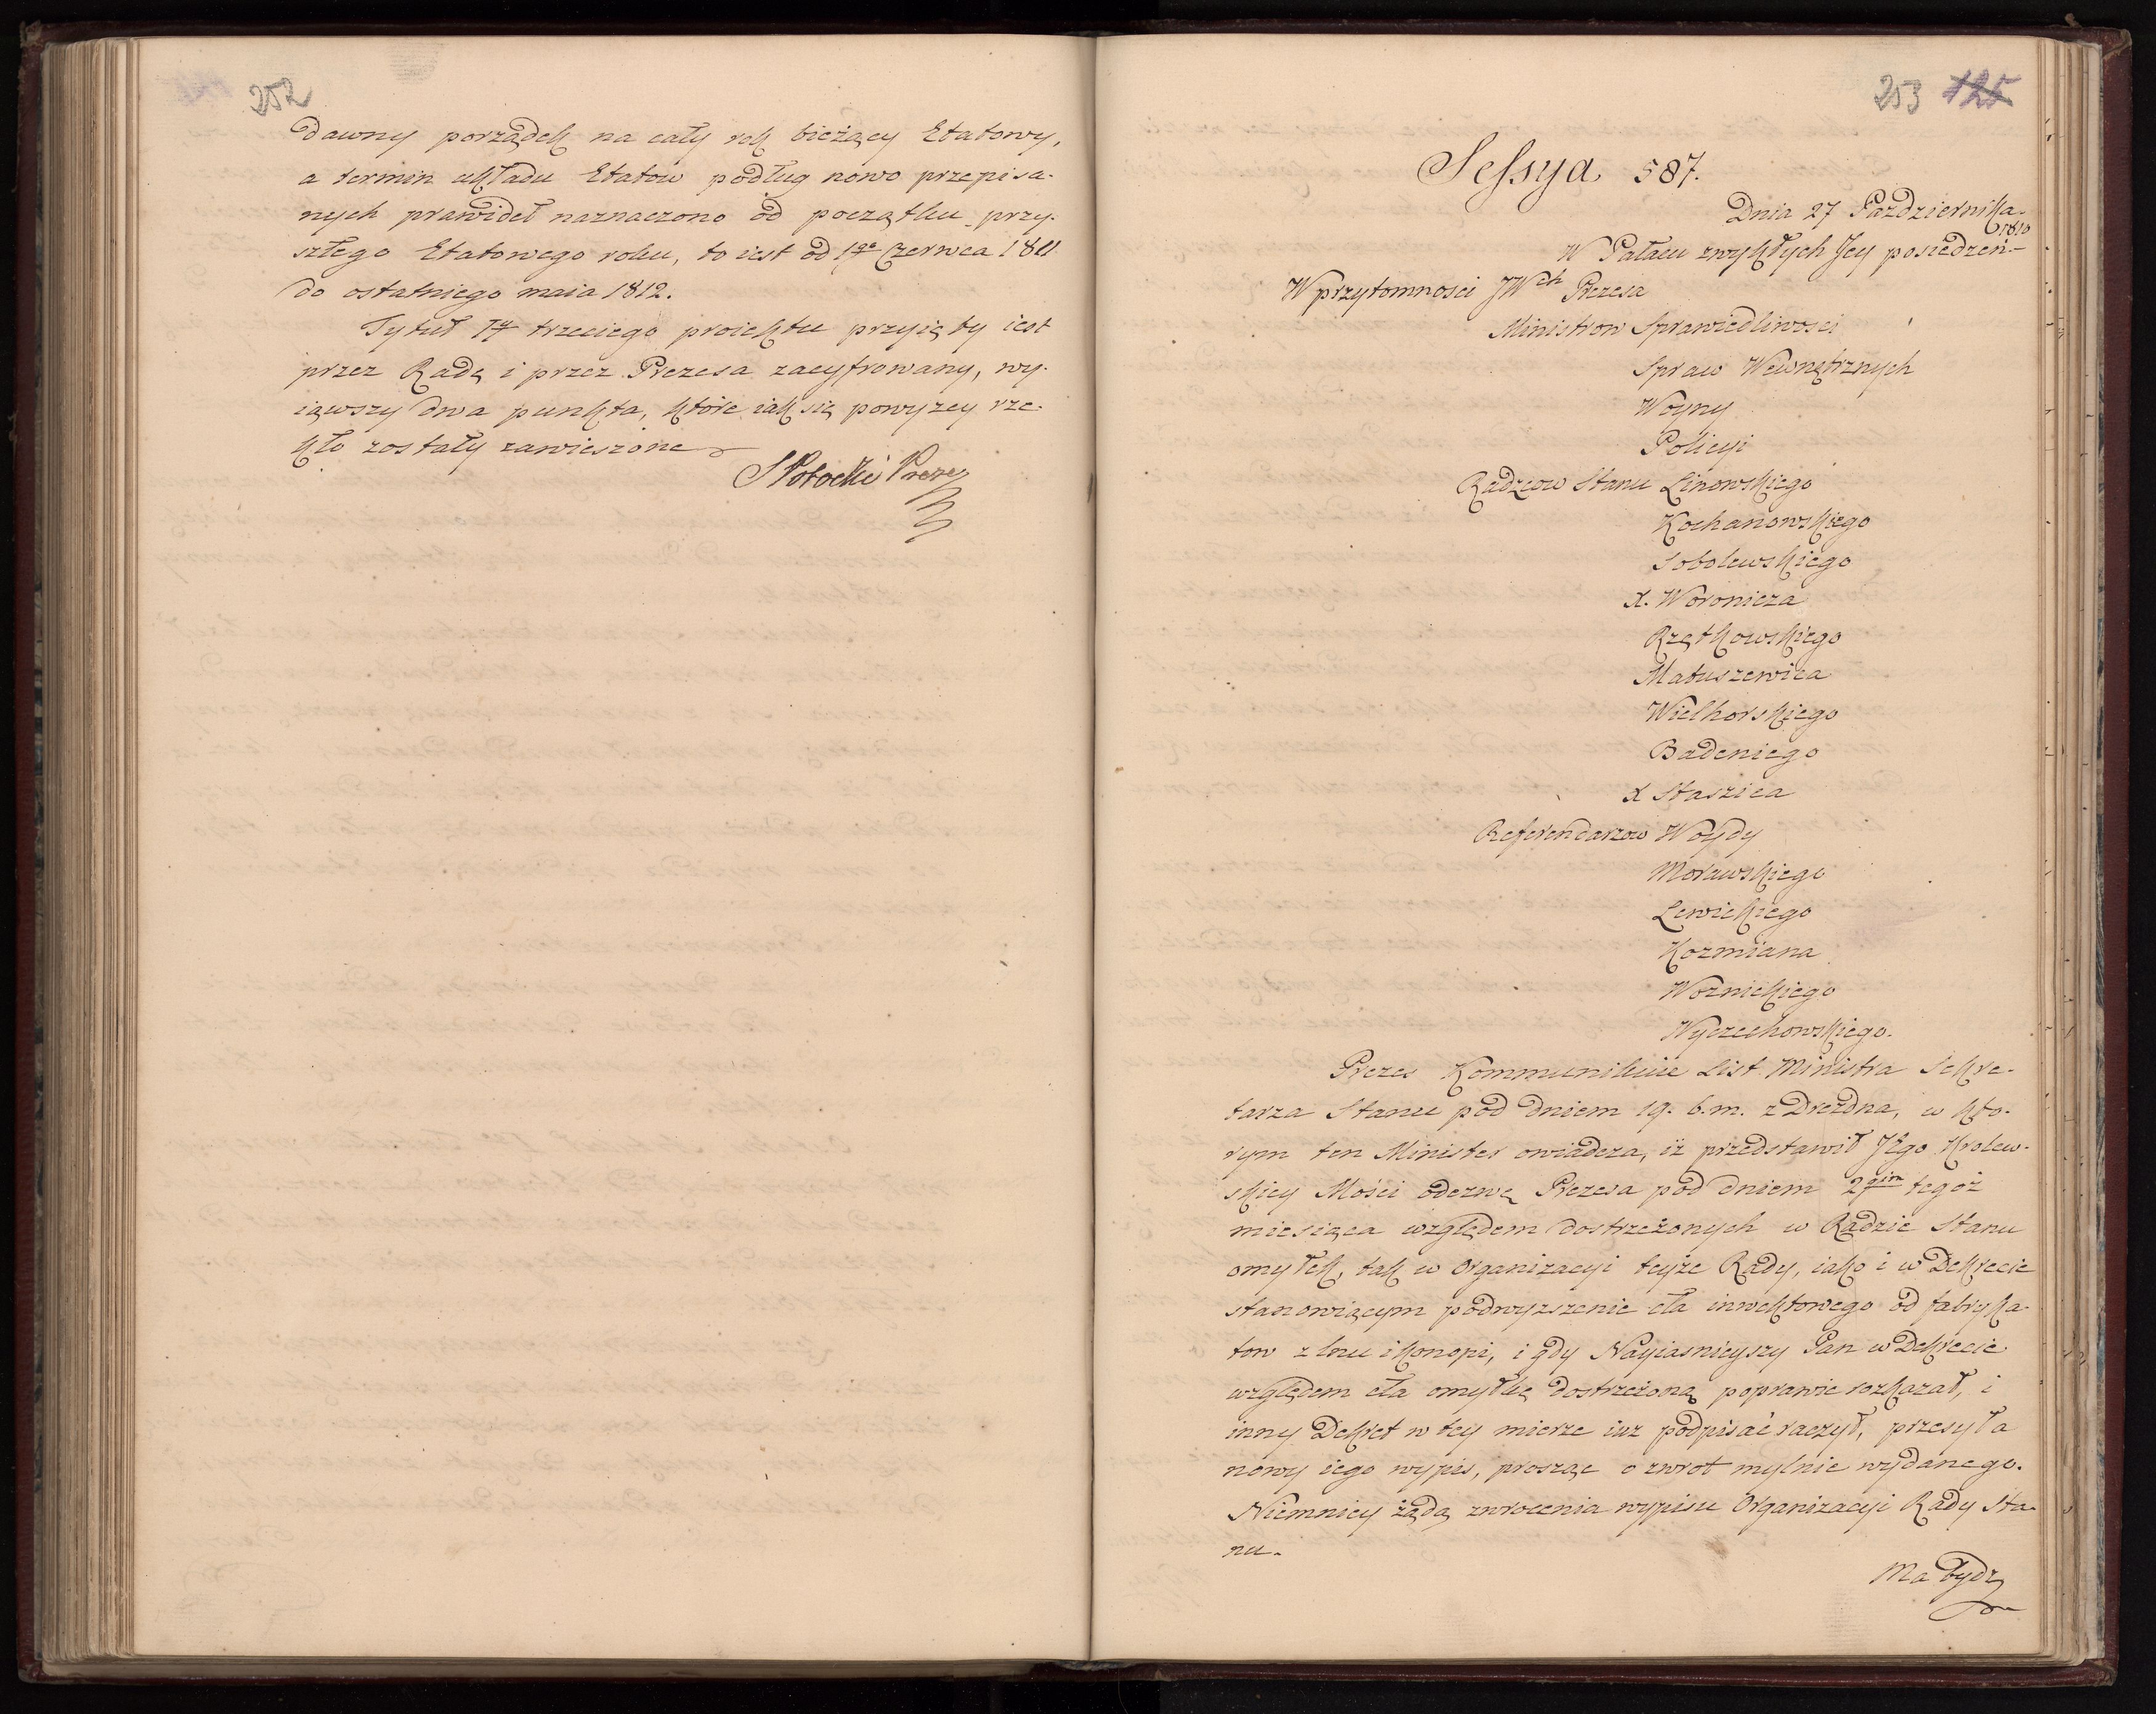 252
dawny porządek na cały rok bieżący Etatowy,
a termin układu Etatow podług nowo przepisa-
nych prawideł naznaczono od początku przy-
szłego Etatowego roku, to iest od 1go Czerwca 1811
do ostatniego maia 1812.
Tytuł IV trzeciego proiektu przyięty iest
przez Radę i przez Prezesa zacyfrowany, wy-
iąwszy dwa punkta, które iak się powyzey rze-
kło zostały zawieszone
S Potocki Prezes
253 125
Sessya 587.
Dnia 27 Pazdziernika
1810
W Pałacu zwykłych Jey posiedzeń-
W przytomnosci JWch Prezesa
Ministrow Sprawiedliwosci
Spraw Wewnętrznych
Woyny
Policyi
Radzcow Stanu Linowskiego
Kochanowskiego
Sobolewskiego
X. Woronicza
Rzętkowskiego
Matuszewica
Wielhorskiego
Badeniego
X Staszica
Referendarzow Woydy
Morawskiego
Lewickiego
Kozmiana
Woznickiego
Wyczechowskiego.
Prezes Kommunikuie List Ministra Sekre-
tarza Stanu pod dniem 19. b.m. z Drezdna, w kto-
rym ten Minister owiadcza, iż przedstawił JEgo Krolew-
skiey Mości odezwę Prezesa pod dniem 2gim tegoż
miesiąca względem dostrzeżonych w Radzie Stanu
omyłek, tak w Organizacyi teyże Rady, iako i w Dekrecie
stanowiącym podwyzszenie cła inwektowego od fabryka-
tow z lnu i konopi, i gdy Nayiasnieyszy Pan w Dekrecie
względem cła omyłkę dostrzeżoną poprawic rozkazał, i
inny Dekret w tey mierze iuz podpisać raczył, przesyła
nowy iego wypis, prosząc o zwrot mylnie wydanego.
Niemniey żąda zwrocenia wypisu Organizacyi Rady Sta-
nu.
Ma bydz